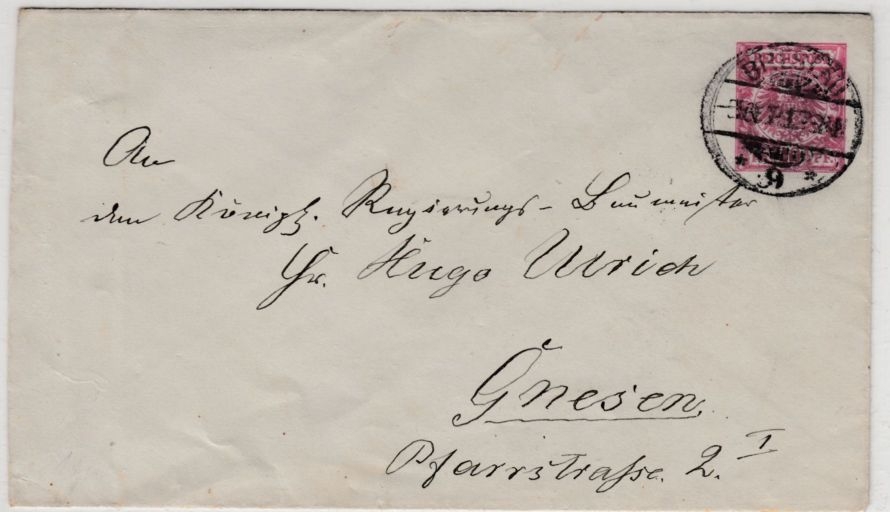 REICHSPOST
BRESLAU
* 9 *
An
den Königl. Regierungs-Baumeister
Hr. Hugo Ulrich
Gnesen.
Pfarrstraße. 2. I